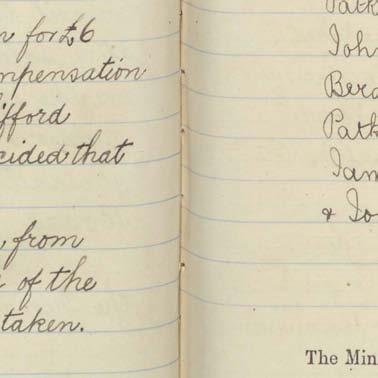 for £6
mpensation
fford
cided that
from
of the
taken.
Path
Joh
Bern
Path
Jam
& Jo
The Min